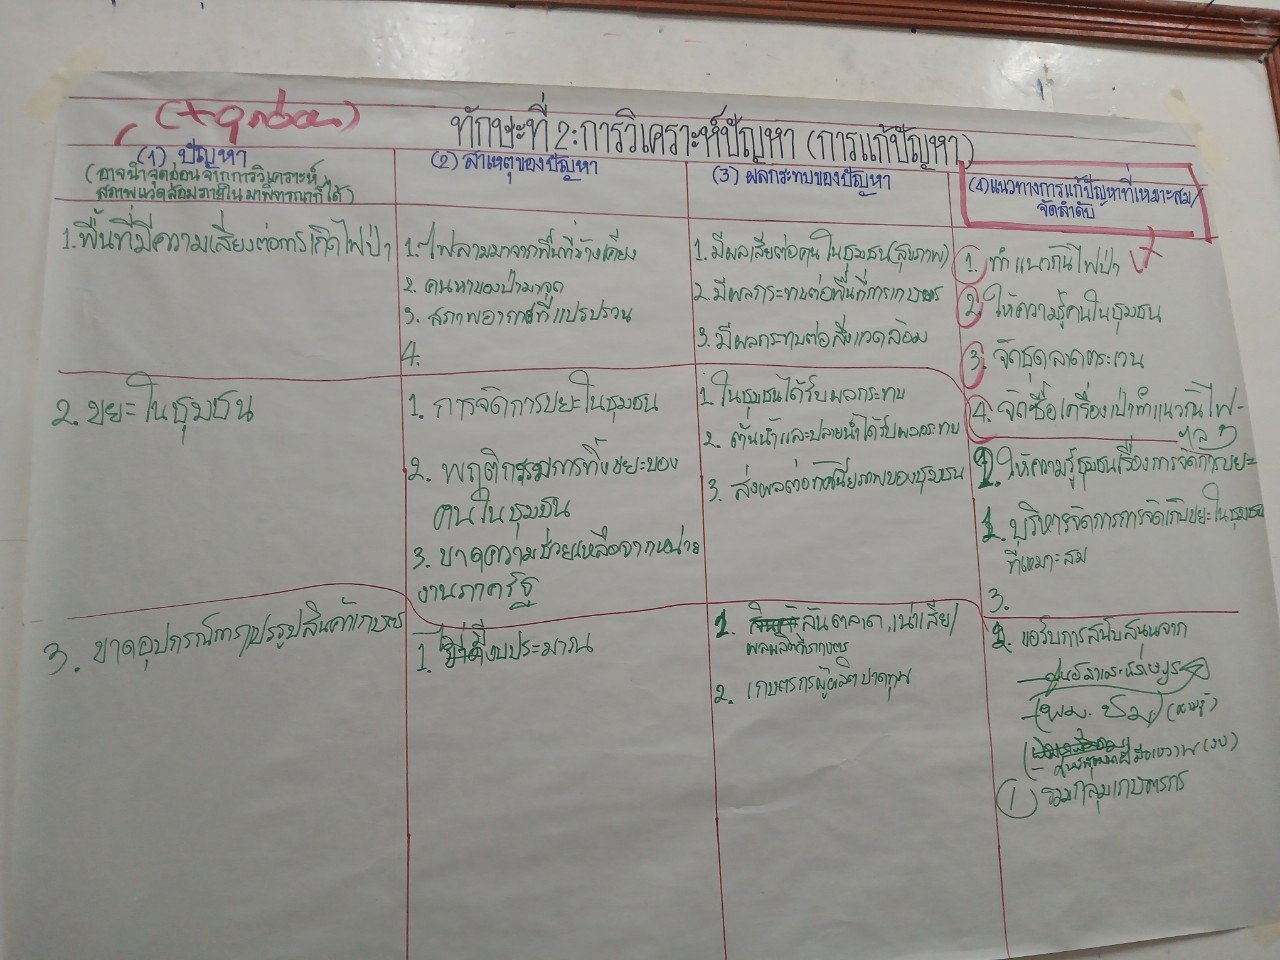 ทักษะที่ 2: การวิเคราะห์ปัญหา (การแก้ปัญหา)
(1) ปัญหา
(อาจนำจุดอ่อนจากการวิเคราะห์
สภาพแวดล้อมภายในมาพิจารณาก็ได้)
(2) สาเหตุของปัญหา
(3) ผลกระทบของปัญหา
(4) แนวทางการแก้ปัญหาที่เหมาะสม/
จัดลำดับ
1. พื้นที่มีความเสี่ยงต่อการเกิดไฟป่า
1. ไฟลามมาจากพื้นที่ข้างเคียง
2. คนหาของป่ามาจุด
3. สภาพอากาศที่แปรปรวน
4.
1. มีผลเสียต่อคนในชุมชน (สุขภาพ)
2. มีผลกระทบต่อพื้นที่การเกษตร
3. มีผลกระทบต่อสิ่งแวดล้อม
1. ทำแนวกันไฟป่า
2. ให้ความรู้คนในชุมชน
3. จัดชุดลาดตระเวน
4. จัดซื้อเครื่องเป่าทำแนวกันไฟ
2. ขยะในชุมชน
1. การจัดการขยะในชุมชน
2. พฤติกรรมการทิ้งขยะของ
คนในชุมชน
3. ขาดความช่วยเหลือจากหน่วย
งานภาครัฐ
1. ในชุมชนได้รับผลกระทบ
2. ต้นน้ำและปลายน้ำได้รับผลกระทบ
3. ส่งผลต่อทัศนียภาพของชุมชน
2. ให้ความรู้ชุมชนเรื่องการจัดการขยะ
1. บริหารจัดการการจัดเก็บขยะในชุมชน
ที่เหมาะสม
3.
3. ขาดอุปกรณ์การแปรรูปสินค้าเกษตร
1. ไม่มีงบประมาณ
1. ล้นตลาด, เน่าเสีย/
ผลผลิตทางการเกษตร
2. เกษตรกรผู้ผลิตขาดทุน
2. ขอรับการสนับสนุนจาก
1 รวมกลุ่มเกษตรกร